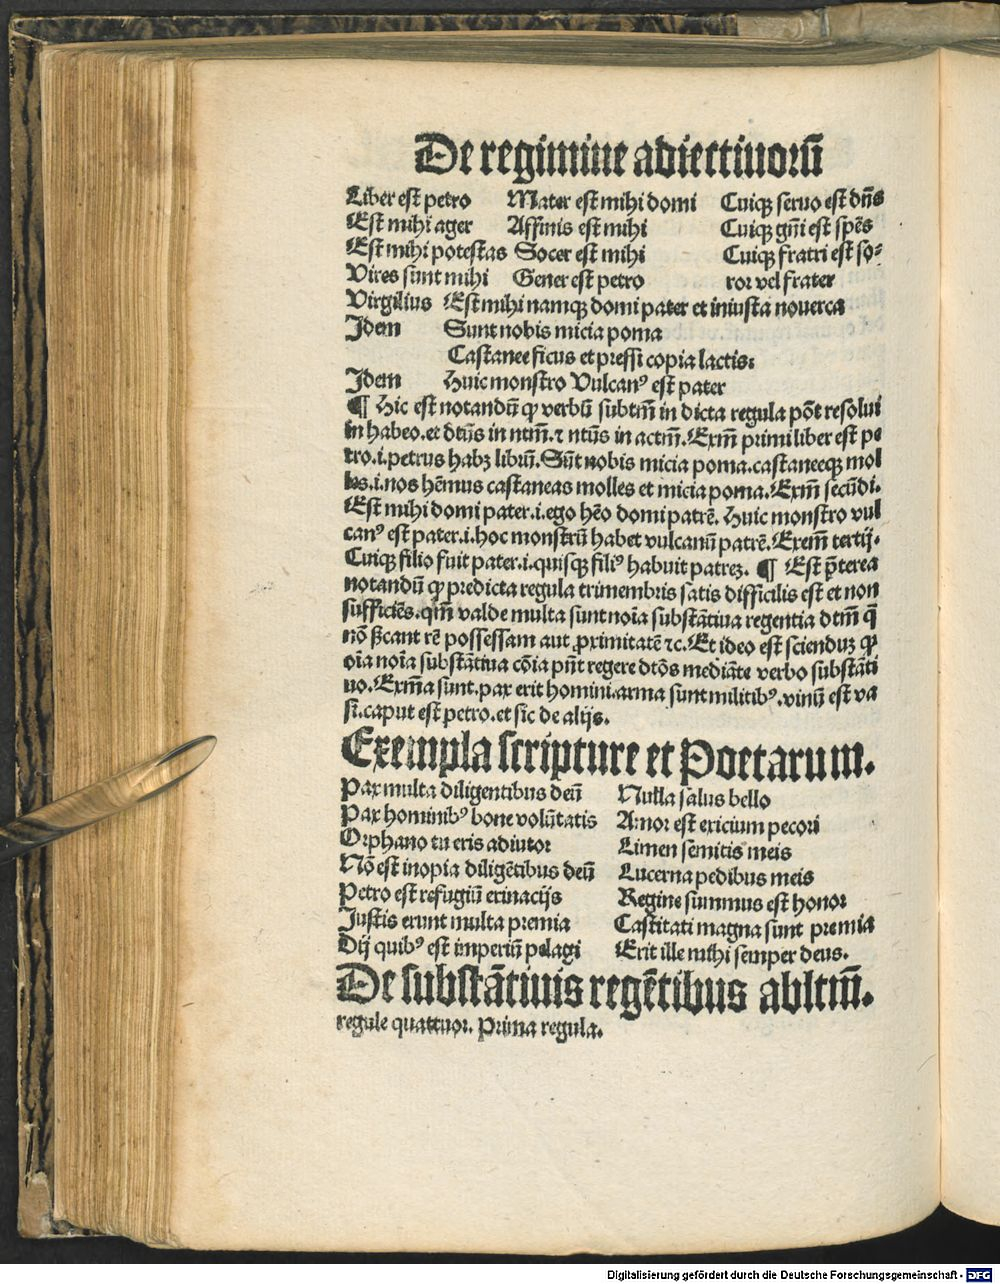 De regimine adiectiuoꝝ
Liber est petro Mater est mihi domi Cuiqꝫ seruo est dn̄s
Est mihi ager Affinis est mihi Cuiqꝫ gn̄i est spēs
Est mihi potestas Socer est mihi Cuiqꝫ fratri est so⸗
Vires sunt mihi Gener est petro ror vel frater
Virgilius Est mihi namqꝫ domi pater et iniusta nouerca
Idem Sunt nobis micia poma
Castanee ficus et pressi copia lactis.
Idem Huic monstro Vulcanꝰ est pater
¶ Hic est notandū ꝙ verbū subtm̄ in dicta regula pōt resolui
in habeo. et dtūs in ntm̄. ⁊ ntūs in actm̄. Exm̄ primi liber est pe
tro .i. petrus habꝫ librū. Sūt nobis micia poma. castaneeqꝫ mol
les .i. nos hēmus castaneas molles et micia poma. Exm̄ secūdi.
Est mihi domi pater .i. ego hēo domi patrē. Huic monstro vul
canꝰ est pater .i. hoc monstrū habet vulcanū patrē. Exem̄ tertij.
Cuiqꝫ filio fuit pater .i. quisqꝫ filiꝰ habuit patreꝫ. ¶ Est p̄terea
notandū ꝙ predicta regula trimembris satis difficilis est et non
sufficiēs. qm̄ valde multa sunt noīa substātiua regentia dtm̄ q̄
nō ßcant rē possessam aut ꝓximitatē ⁊c. Et ideo est scienduꝫ ꝙ
oīa noīa substātiua cōia pn̄t regere dtōs mediāte verbo substāti
uo. Exm̄a sunt. pax erit homini. arma sunt militibꝰ. vinū est va
si. caput est petro. et sic de alijs.
Exempla scripture et Poetarum.
Pax multa diligentibus deū Nulla salus bello
Pax hominibꝰ bone volūtatis Amor est exicium pecori
Orphano tu eris adiutor Limen semitis meis
Nō est inopia diligētibus deū Lucerna pedibus meis
Petro est refugiū erinacijs Regine summus est honor
Iustis erunt multa premia Castitati magna sunt premia
Dij quibꝰ est imperiū pelagi Erit ille mihi semper deus.
De substātiuis regētibus abltm̄.
regule quattuor. Prima regula.
Digitalisierung gefördert durch die Deutsche Forschungsgemeinschaft - DFG